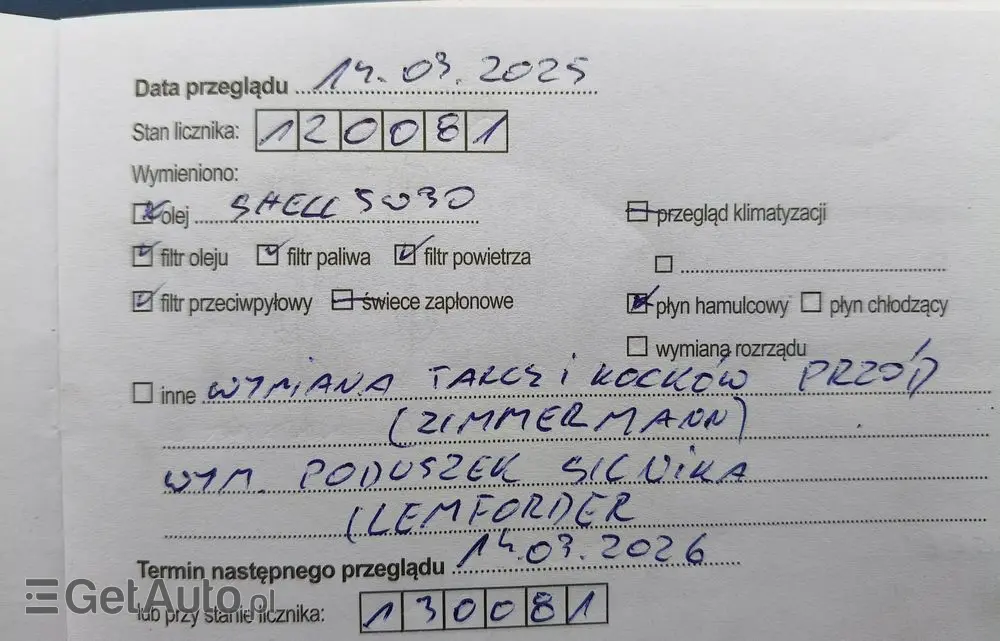 Data przeglądu 14.03.2025
Stan licznika: 120081
Wymieniono:
olej SHELL 5W30
przegląd klimatyzacji
filtr oleju filtr paliwa filtr powietrza
filtr przeciwpyłowy świece zapłonowe
płyn hamulcowy płyn chłodzący
wymiana rozrządu
inne WYMIANA TARCZ i KLOCKÓW PRZÓD
(ZIMMERMANN)
WYM. PODUSZEK SILNIKA
(LEMFORDER
Termin następnego przeglądu 14.03.2026
lub przy stanie licznika: 130081
GetAuto.pl